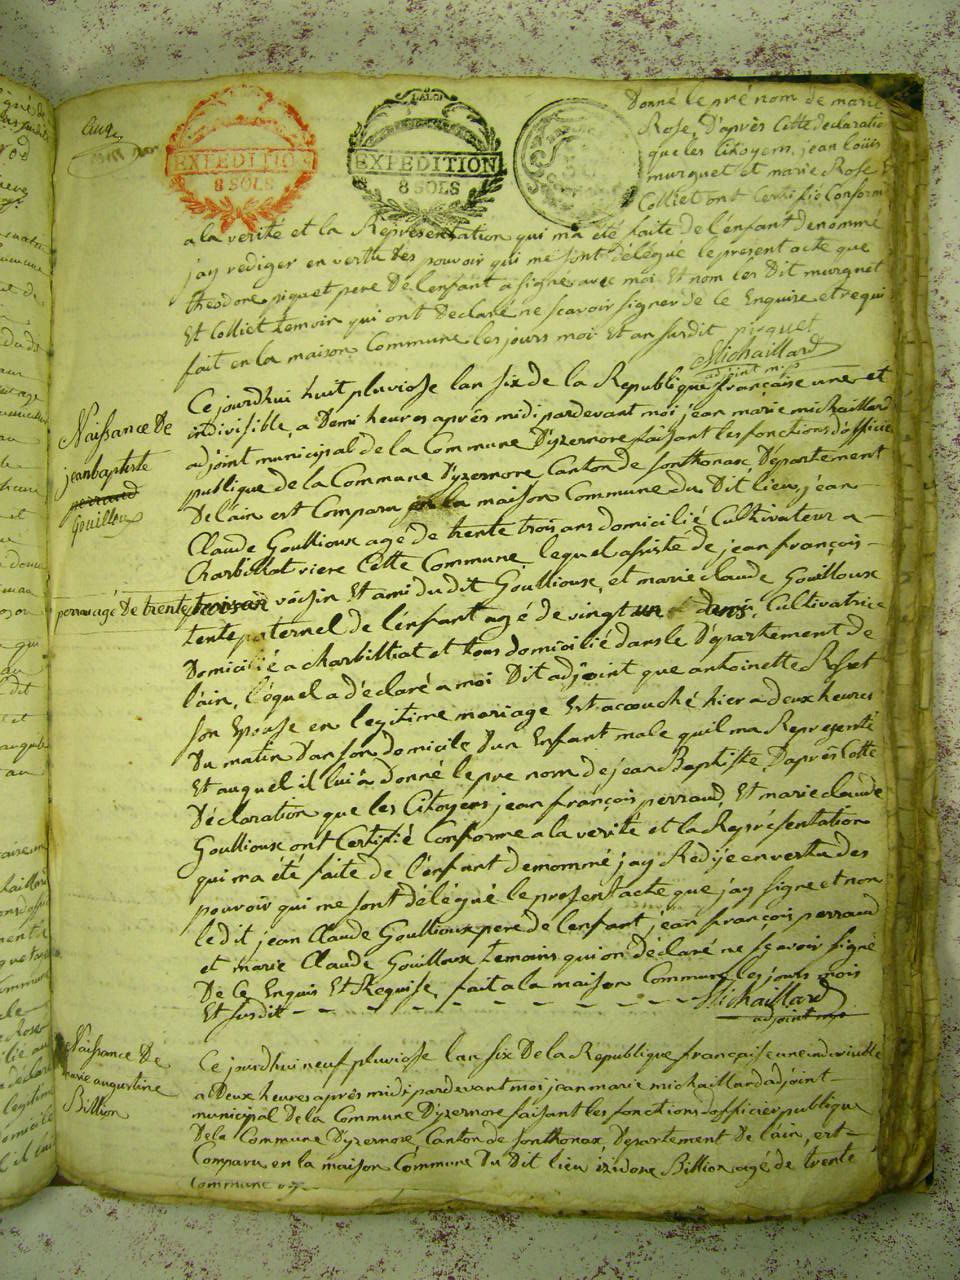 LA LOI
EXPEDITION
8 SOLS
EXPEDITION
8 SOLS
Donné le pré nom de marie
Rose, D'aprés Cette declaratio
que les Citoyens, jean loüis
murguet et marie Rose
Colliet ont Certifié Conforme
a la verité et la Représentation qui ma été faite de l'enfant denommé
jay rediger en vertu des pouvoir qui me sont délégué le present acte que
theodore piquet pere De lenfant a signé avec moi Et nom les Dit murguet
Et Colliet temoin qui ont Declaré ne scavoir signer de le Enquire et requi
fait en la maison Commune les jours moi Et an susdit piquet
Michaillard
adjoint m.
Naissance De
jean baptiste
perraud
Gouilloux
Ce jourdhui huit pluviosse lan six de la Republique française une et
indivisible, a Demi heures aprés midi pardevant moi jean marie michaillard
adjoint municipal de la Commune D'yzernore faisant les fonctions d'officie
publique de la Commune D'yzernore, Canton de sonthonax, Département
De lain est Comparu en la maison Commune du Dit lieu, jean
Claude Goullioux agé de trente trois ans domicilié Cultivateur a
Charbilliat riere Cette Commune, lequel assisté de jean françois
perraud agé de trente trois an voisin Et ami du dit Goullioux, et marie claude Gouilloux
tente paternel de l'enfant agé de vingt un Cultivatrice
Domicilié a charbilliat et tous domicilié dans le Département de
l'ain, l'équel a déclaré a moi Dit adjoint que antoinette Reset
son Epouse en legitime mariage Est acouché hier a deux heures
Du matin Dans son domicile Dun Enfant male quil ma Représenté
Et auquel il lui a donné le pre nom de jean Baptiste, Daprés Cette
Déclaration que les Citoyens jean françois perraud, Et marie claude
Goullioux ont Certifié Conforme a la verité et la Représentation
qui ma été faite de l'enfant denommé jay Redije en vertu des
pouvoir qui me sont délégué le present acte que jay signe et non
le dit jean Claude Goullioux pere de lenfant, jean françois perraud
et marie Claude Gouilloux temoins qui on déclaré ne scavoir signé
De Ce Enquis Et Requise, fait a la maison Commune les jours mois
Et susdit Michaillard
adjoint mp
Naissance De
marie augustine
Billion
Ce jourdhui neuf pluviosse lan six De la Republique française une indivisible
a Deux heures aprés midi pardevant moi jean marie michaillard adjoint
municipal De la Commune D'yzernore faisant les fonctions dofficier publique
De la Commune D'yzernore, Canton de Sonthonax, Departement De lain, est
Comparu en la maison Commune Du Dit lieu izidore Billion agé de trente
Commune